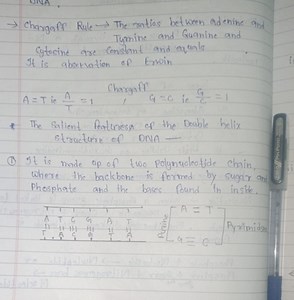 DNA.
→ Chargaff Rule → The ratios between adenine and
Tymine and Guanine and
Cytocine are Constant and equals.
It is abservation of Erwin
Chargaff
A=T ie A/T = 1 , G=C ie G/C = 1
The Salient featuress of the Double helix
structure of DNA —
① It is made up of two polynucleotide chain,
where the backbone is formed by sugar and
Phosphate and the bases found in inside.
A T C G A T
T A G A T A
Purine
A = T
G ≡ C
Pyrimidine